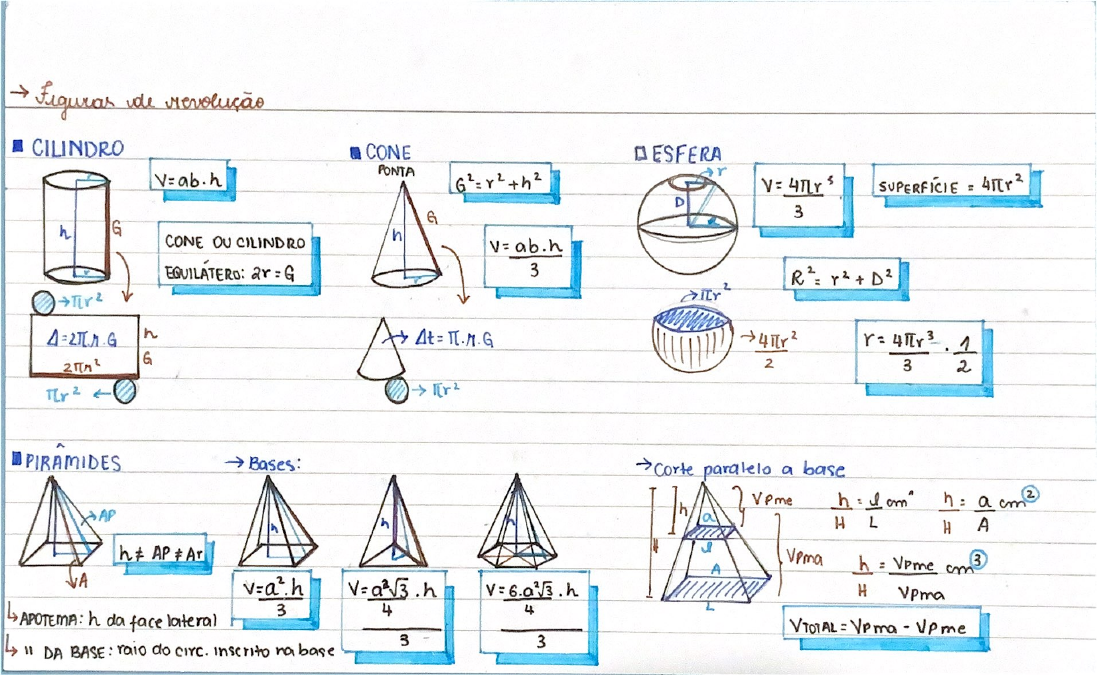 → Figuras de revolução
■ CILINDRO
V = ab.h
h
G
CONE OU CILINDRO
EQUILÁTERO: 2r = G
→ πr²
Δ = 2π.r.G
h
G
2πr²
πr² ←
■ CONE
PONTA
G² = r² + h²
h
G
V = ab.h
3
→ Δt = π.r.G
→ πr²
□ ESFERA
r
D
V = 4πr³
3
SUPERFÍCIE = 4πr²
R² = r² + D²
→ πr²
→ 4πr²
2
r = 4πr³ . 1
3 2
■ PIRÂMIDES
→ AP
h ≠ AP ≠ Ar
A
↳ APOTEMA: h da face lateral
↳ " DA BASE: raio do circ. inscrito na base
→ Bases:
h
h
h
V = a².h
3
V = a²√3 . h
4
3
V = 6.a²√3 . h
4
3
→ Corte paralelo a base
H
h
a
l
A
L
Vpme
Vpma
h = l cm^
H L
h = a cm²
H A
h = Vpme cm³
H Vpma
VTOTAL = Vpma - Vpme